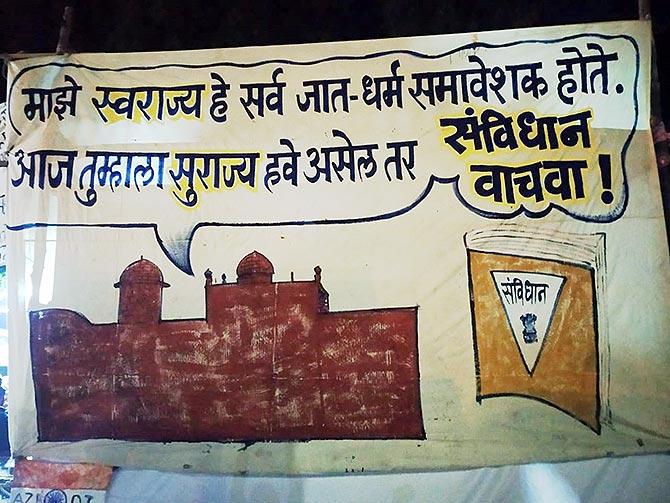 माझे स्वराज्य हे सर्व जात-धर्म समावेशक होते.
आज तुम्हाला सुराज्य हवे असेल तर संविधान
वाचवा !
संविधान